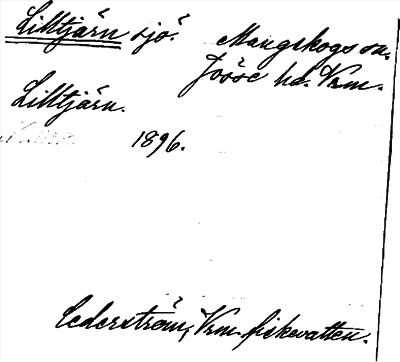 Lilltjärn sjö. Mangskogs sn.
Jösse hd. Vrm.
Lilltjärn.
1896.
Cederström, Vrm. fiskevatten.